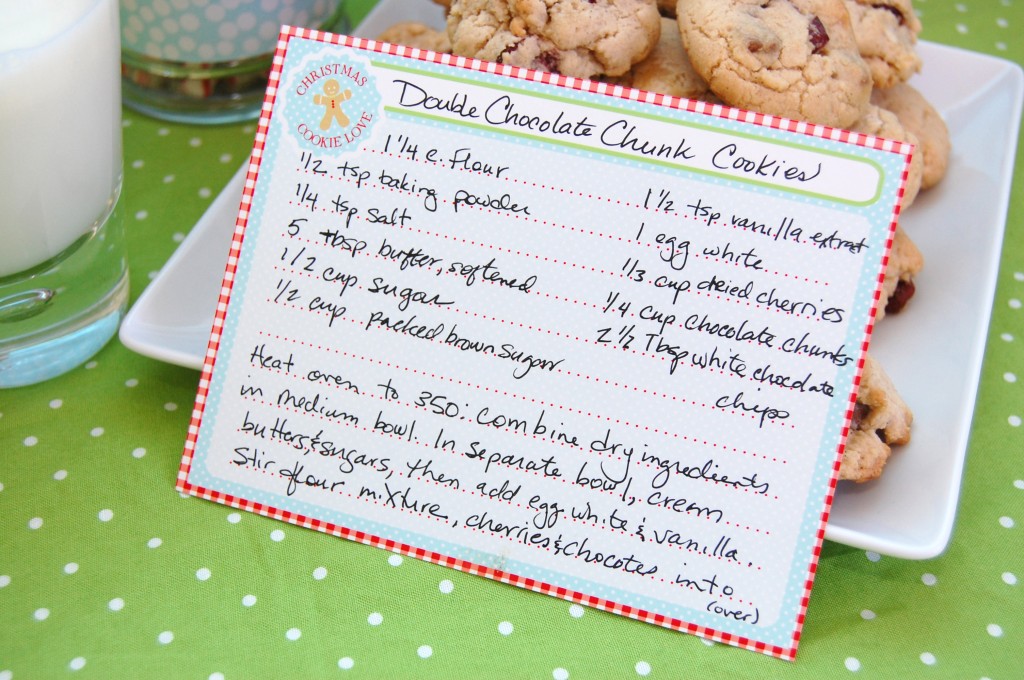 CHRISTMAS
COOKIE LOVE
Double Chocolate Chunk Cookies
1 1/4 c. flour
1/2 tsp baking powder
1/4 tsp salt
5 tbsp butter, softened
1/2 cup sugar
1/2 cup packed brown sugar
1 1/2 tsp vanilla extrat
1 egg white
1/3 cup dried cherries
1/4 cup chocolate chunks
2 1/2 Tbsp white chocolate
chips
Heat oven to 350: Combine dry ingredients
in medium bowl. In separate bowl, cream
butters, & sugars, then add egg white & vanilla.
Stir flour mixture, cherries & chocotes into
(over)